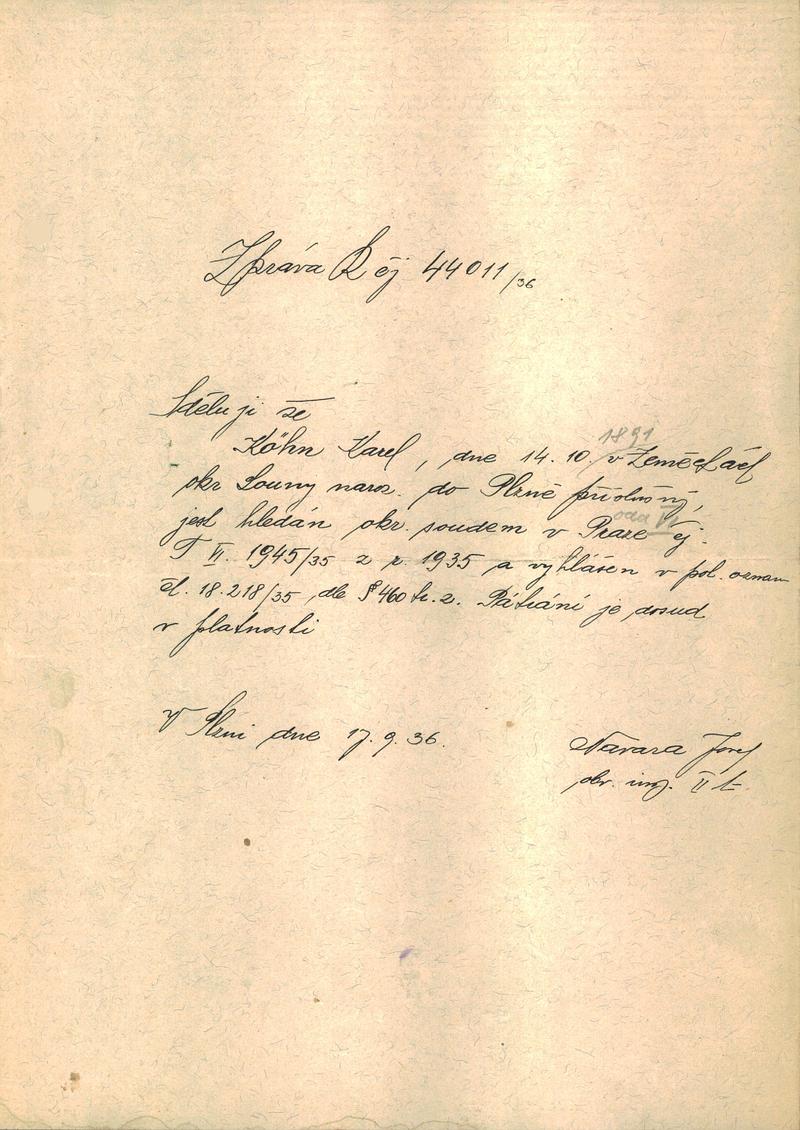 Zpráva K čj 44011/36
Sděluji že
1891
Köhn Karel, dne 14.10. v Zeměchách
okr Louny naroz. do Plzně příslušný,
odd VI
jest hledán okr. soudem v Praze čj.
T VI. 1945/35 z r. 1935 a vyhlášen v pol. oznam
čl. 18.218/35 dle § 460 tr. z. Pátrání je dosud
v platnosti
V Plzni dne 17.9.36.
Navara Josef
obv. insp. II t